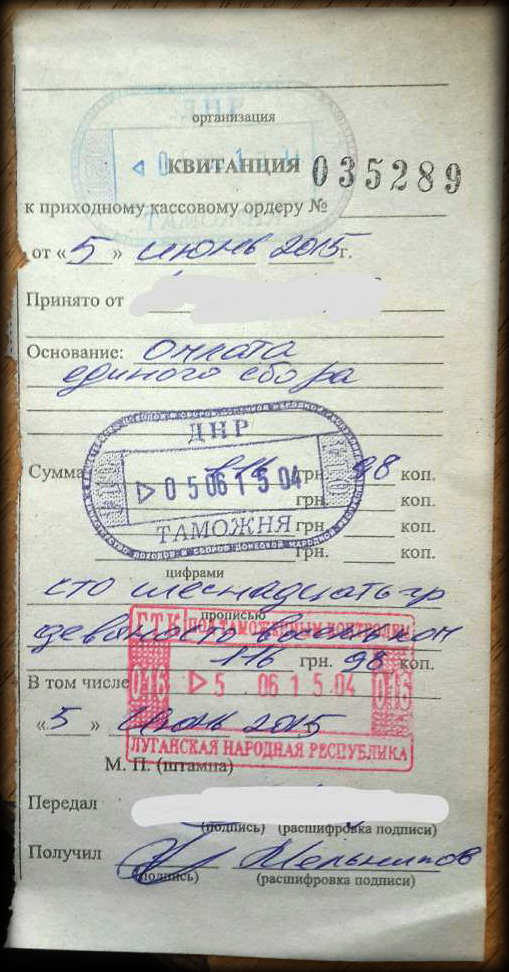 ДНР
организация
КВИТАНЦИЯ 035289
ТАМОЖНЯ
к приходному кассовому ордеру №
от «5» июнь 2015г.
Принято от
Основание: Оплата
единого сбора
ДНР
Сумма 116 грн. 98 коп.
050615 04
грн. коп.
ТАМОЖНЯ грн. коп.
грн. коп.
цифрами
сто шеснадцать гр
прописью
ГТК ПОД ТАМОЖЕННЫМ КОНТРОЛЕМ
девяносто восемь коп
116 грн. 98 коп.
В том числе
013 5 .06 15.04 013
«5» Июнь 2015
ЛУГАНСКАЯ НАРОДНАЯ РЕСПУБЛИКА
М. П. (штампа)
Передал
(подпись) (расшифровка подписи)
Получил Мельников
(подпись) (расшифровка подписи)